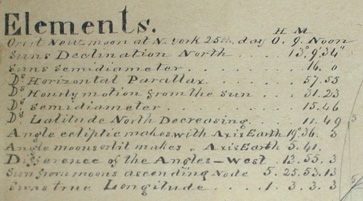 Elements.
H. M.
New moon at N. york 25th. day 0. 9. Noon
Suns Declination North 13. 9. 34"
Suns semidiameter 16. 0
Do Horizontal Parallax 57. 55
Do Hourly motion from the sun 31. 23
Do semidiameter 15. 46
Do Latitude North Decreasing 11. 49
Angle ecliptic makes with Axis Earth 19°. 36. 3
Angle moons orbit makes " Axis Earth 5. 41.
Difference of the Angles - West 13. 55. 3
Sun from moons ascending Node 5. 25. 53. 13
Suns true Longitude 1. 3. 3. 3